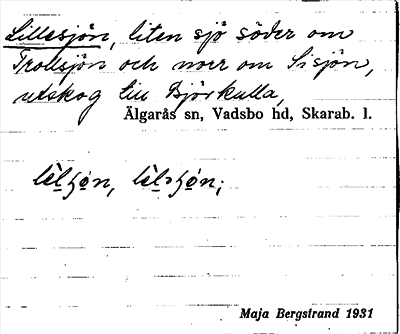 Lillesjön, liten sjö söder om
Trollsjön och norr om Sisjön,
utskog till Björkulla,
Älgarås sn, Vadsbo hd, Skarab. l.
Maja Bergstrand 1931